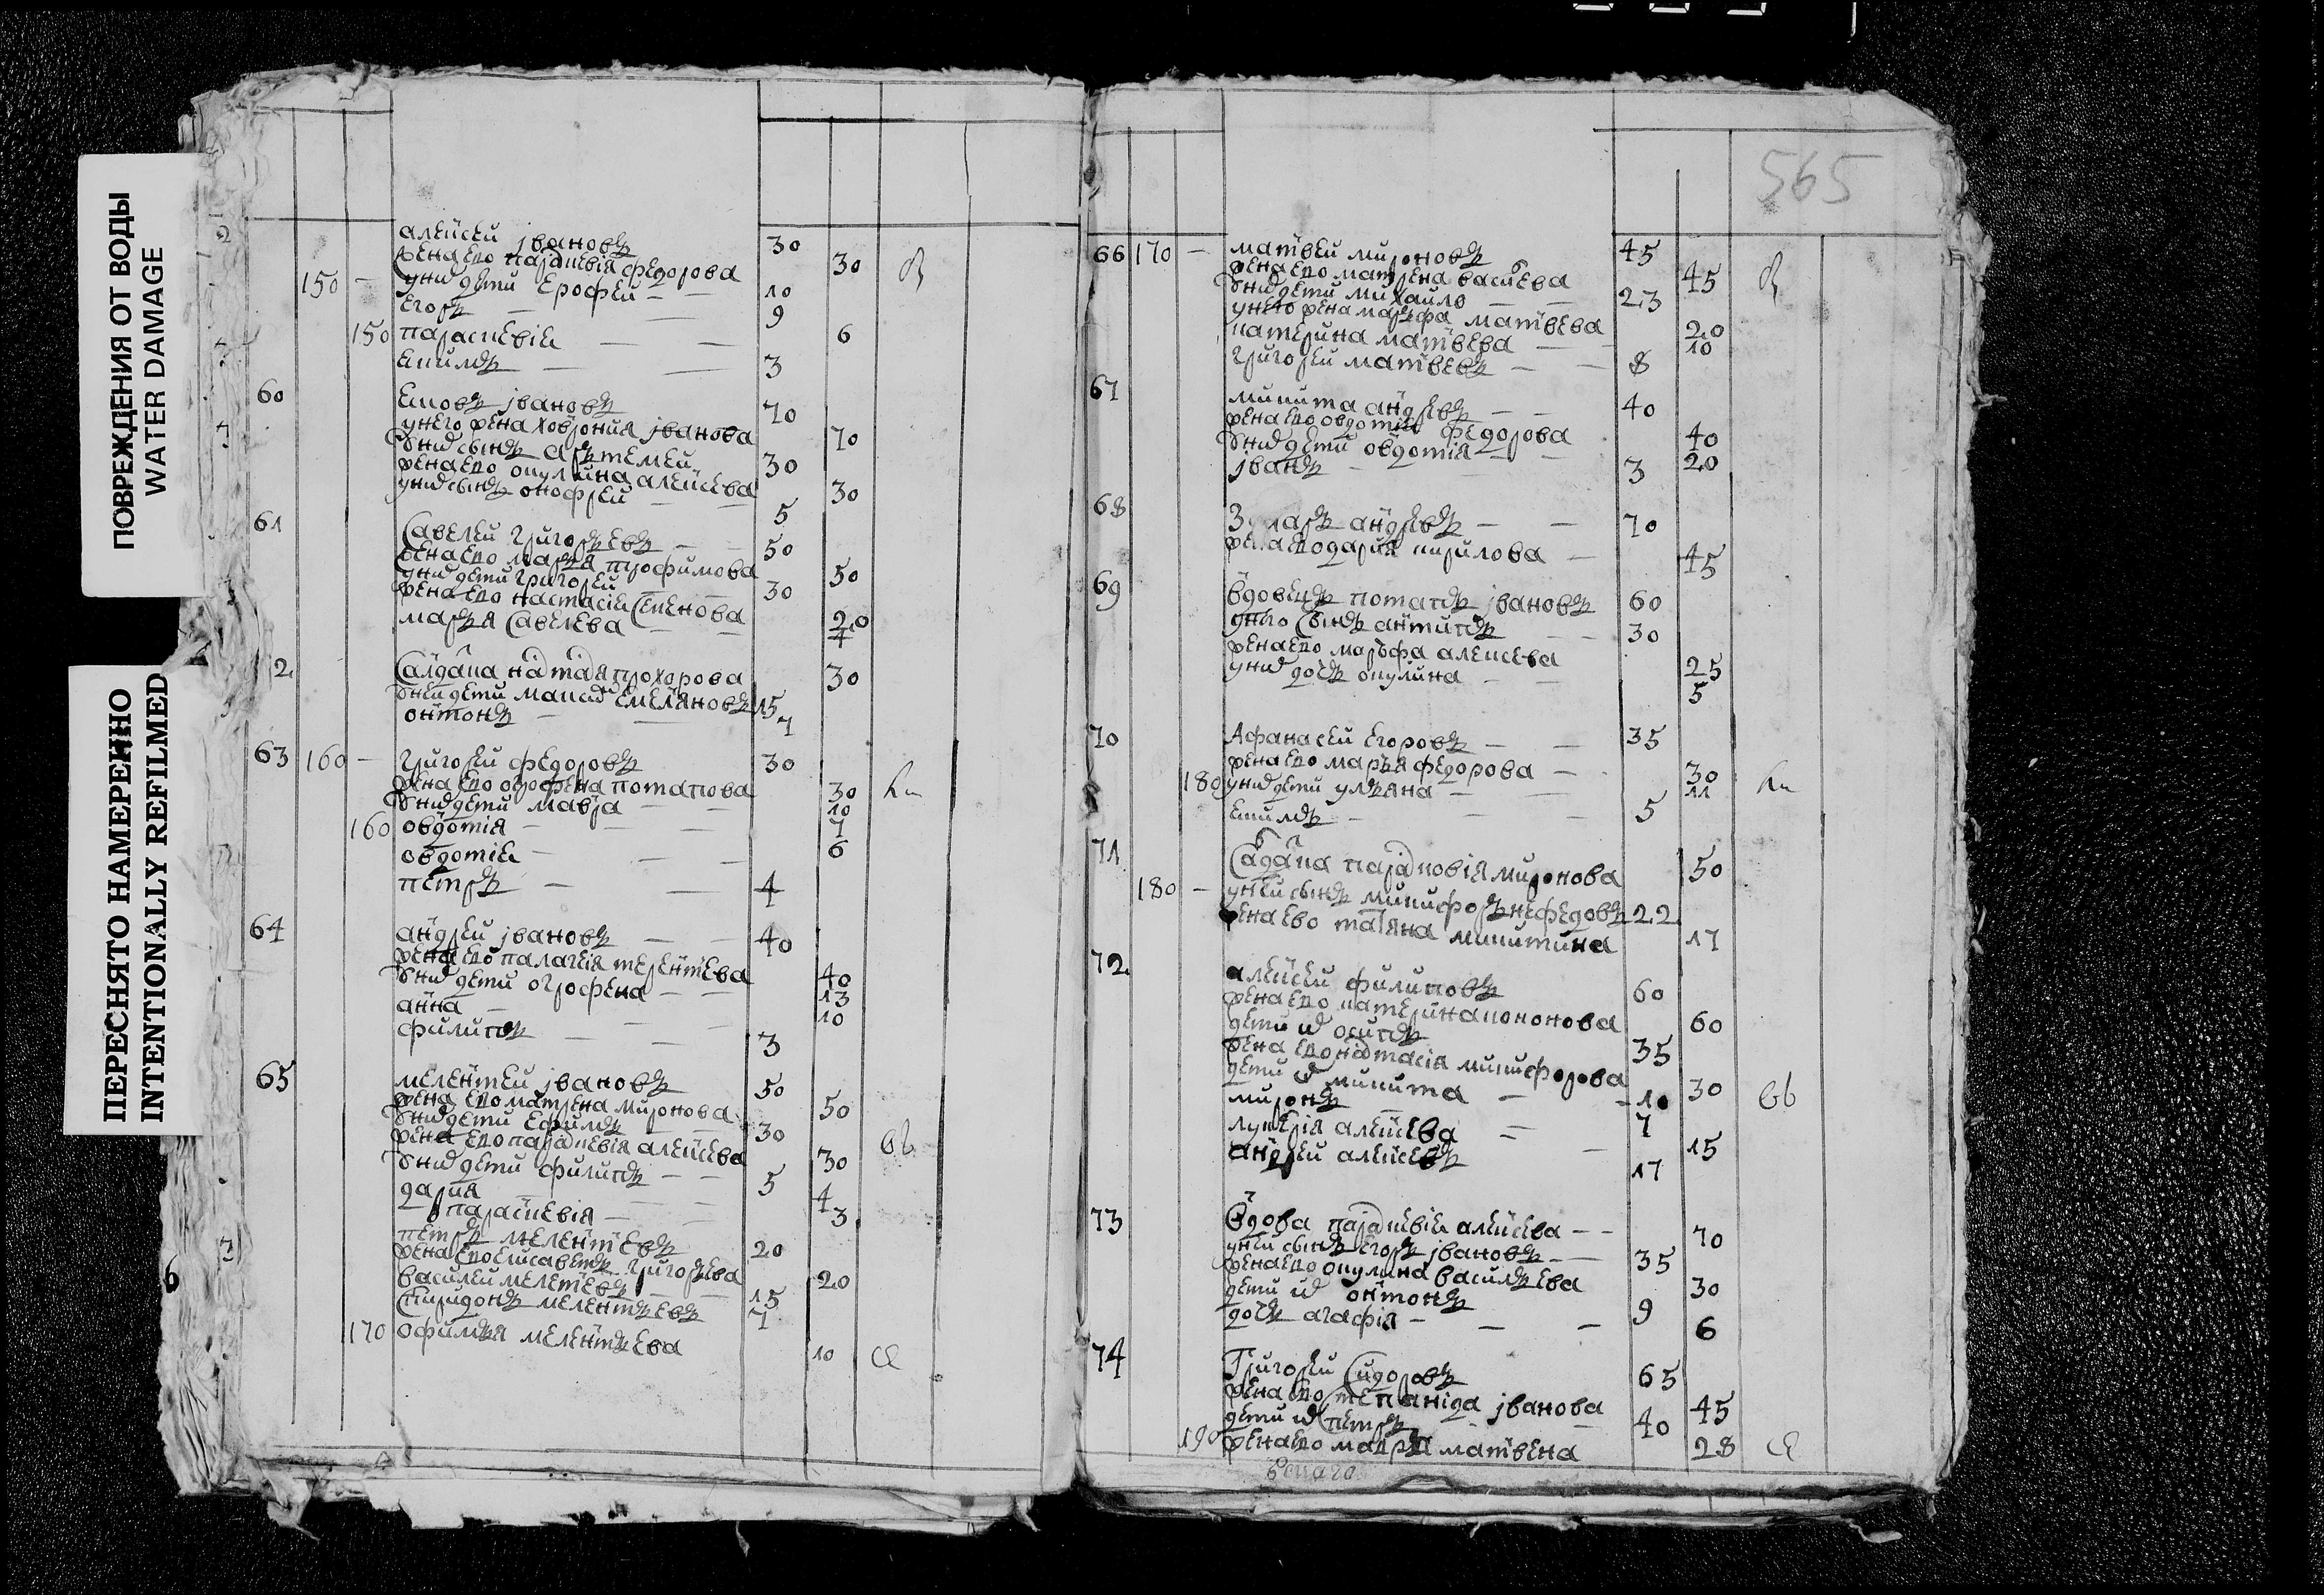 ПОВРЕЖДЕНИЯ ОТ ВОДЫ
WATER DAMAGE
ПЕРЕСНЯТО НАМЕРЕННО
INTENTIONALLY REFILMED
алеѯеи јвановъ 30
жена ево параскевiя федорова 30
150 — у них дети ерофеи — 10
егоръ — — 9
150 параскевiя — — 6
екимъ — — 3
60 ековъ јвановъ 70
у него жена ховрония јванова 70
у них сынъ артемеи 30
жена ево окулина алеѯеева 30
у них сынъ онофреи — 5
61 Савелеи григорьевъ — 50
жена ево марья трофимова 50
у них дети григореи — 30
жена ево настасiя Семенова 20
марья Савелева — 7
2 Салдатка настасiя прохорова 30
у неи дети макаръ емеляновъ 15
онтонъ — 7
63 160 — григореи федоровъ 30
жена ево огрофена потапова 30
у них дети мавра — 10
160 овдотiя — 7
овдотiя — 6
петръ — 4
64 андреи јвановъ — 40
жена ево палагея терентева 40
у них дети огрофена — 13
анна — 10
филипъ — 3
65 мелентеи јвановъ 50
жена ево матрена миронова 50
у них дети ефимъ — 30
жена ево параскевiя алеѯеева 30
у них дети филипъ — 5
дария 4
параскевiя — 3
петръ мелентевъ 20
жена ево елисаветъ григорьева 20
василеи мелентевъ — 15
спиридонъ мелентьевъ 7
170 офимья мелентьева 10
565
66 170 — матвеи мироновъ 45
жена ево матрена васильева 45
у них дети михаило — 23
у него жена марьфа матвева 20
катерина матвева — 10
григореи матвевъ — 8
67 микита андревъ — 40
жена ево овдотия федорова 40
у них дети овдотiя — 20
јванъ — 3
68 захаръ андревъ — 70
жена ево дария кирилова — 45
69 вдовецъ потапъ јвановъ 60
у него сынъ антипъ — 30
жена ево марьфа алеѯеева 25
у них дочь окулина — 5
70 Афанасеи егоровъ — 35
жена ево марья федорова — 30
180 у них дети ульяна — 11
екимъ — 5
71 Салдатка парасковiя миронова 50
180 — у неи сынъ микифоръ нефедовъ 22
жена ево татяна микитина 17
72 алеѯеи филиповъ 60
жена ево катерина кононова 60
дети их осипъ 35
жена ево настасiя микифорова 30
дети их микита — 10
миронъ 7
лукерiя алеѯеева — 15
андреи алеѯеевъ — 17
73 Вдова параскевiя алеѯеева — 70
у неи сынъ егоръ јвановъ — 35
жена ево окулина васильева 30
дети их онтонъ 9
дочь агафiя — 6
74 Григореи Сидоровъ 65
жена ево степанида јванова 45
дети их петръ 40
190 жена ево марья матвеена 28